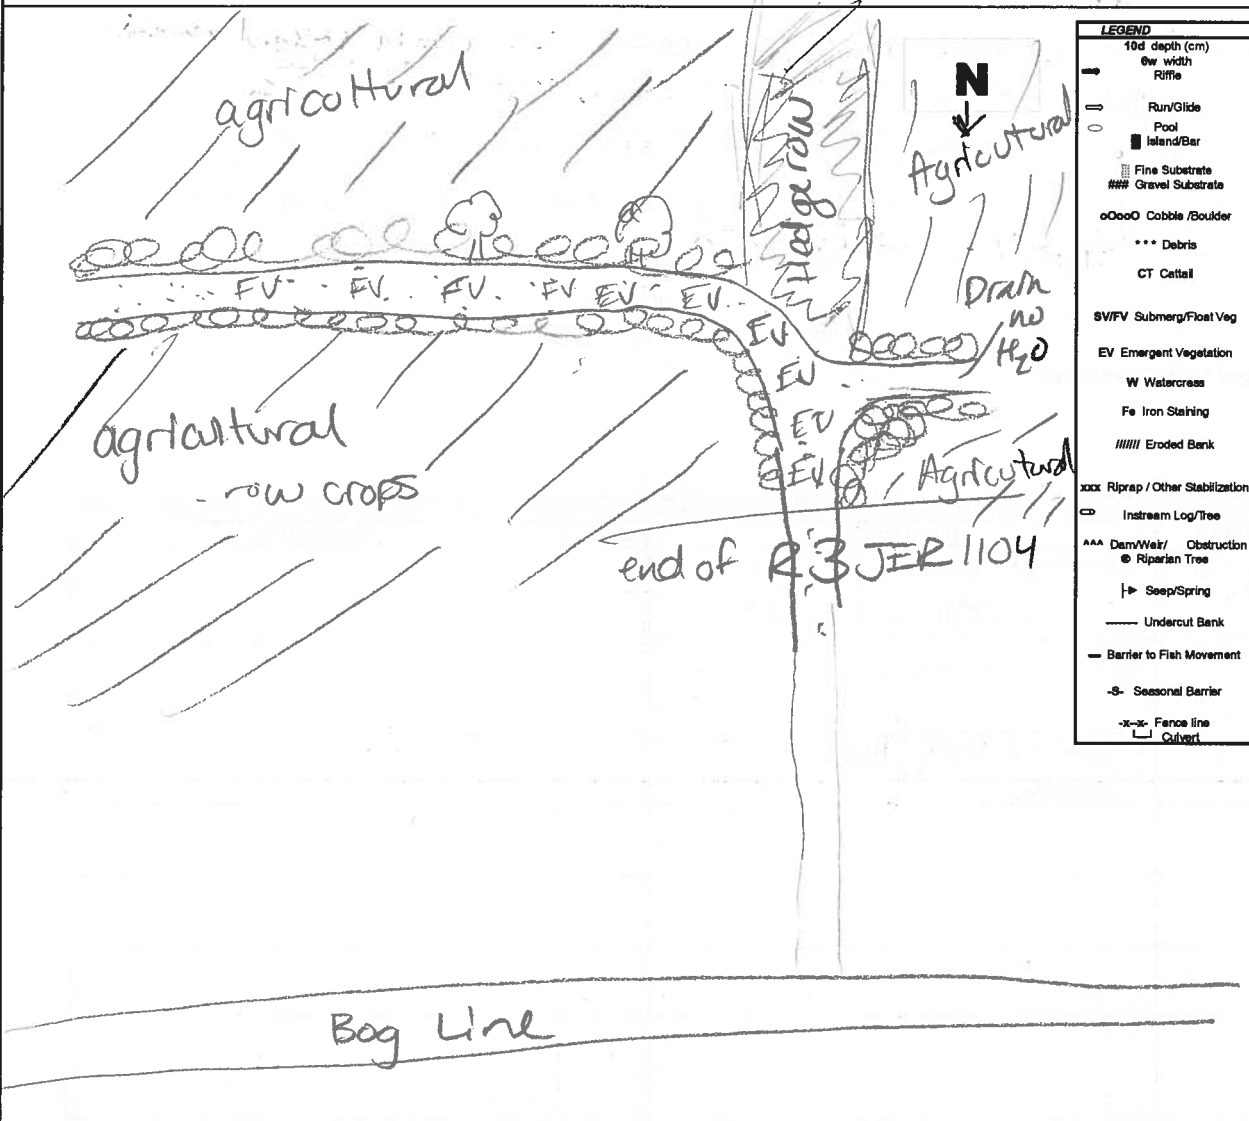 agricultural
Hedgerow
N
Agricutural
Drain
no
H2O
EV EV EV EV EV EV
EV
EV
EV
EV
agricultural
- row crops
Agricutural
end of R3JER1104
Bog Line
LEGEND
10d depth (cm)
6w width
Riffle
Run/Glide
Pool
Island/Bar
Fine Substrate
### Gravel Substrate
oOooO Cobble /Boulder
*** Debris
CT Cattail
SV/FV Submerg/Float Veg
EV Emergent Vegetation
W Watercress
Fe Iron Staining
/////// Eroded Bank
xxx Riprap / Other Stabilization
Instream Log/Tree
^^^ Dam/Weir/ Obstruction
Riparian Tree
Seep/Spring
Undercut Bank
Barrier to Fish Movement
-S- Seasonal Barrier
-x--x- Fence line
Culvert